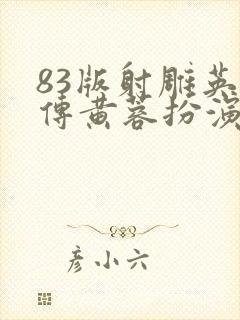 83版射雕英
傳黄蓉扮演
彦小六